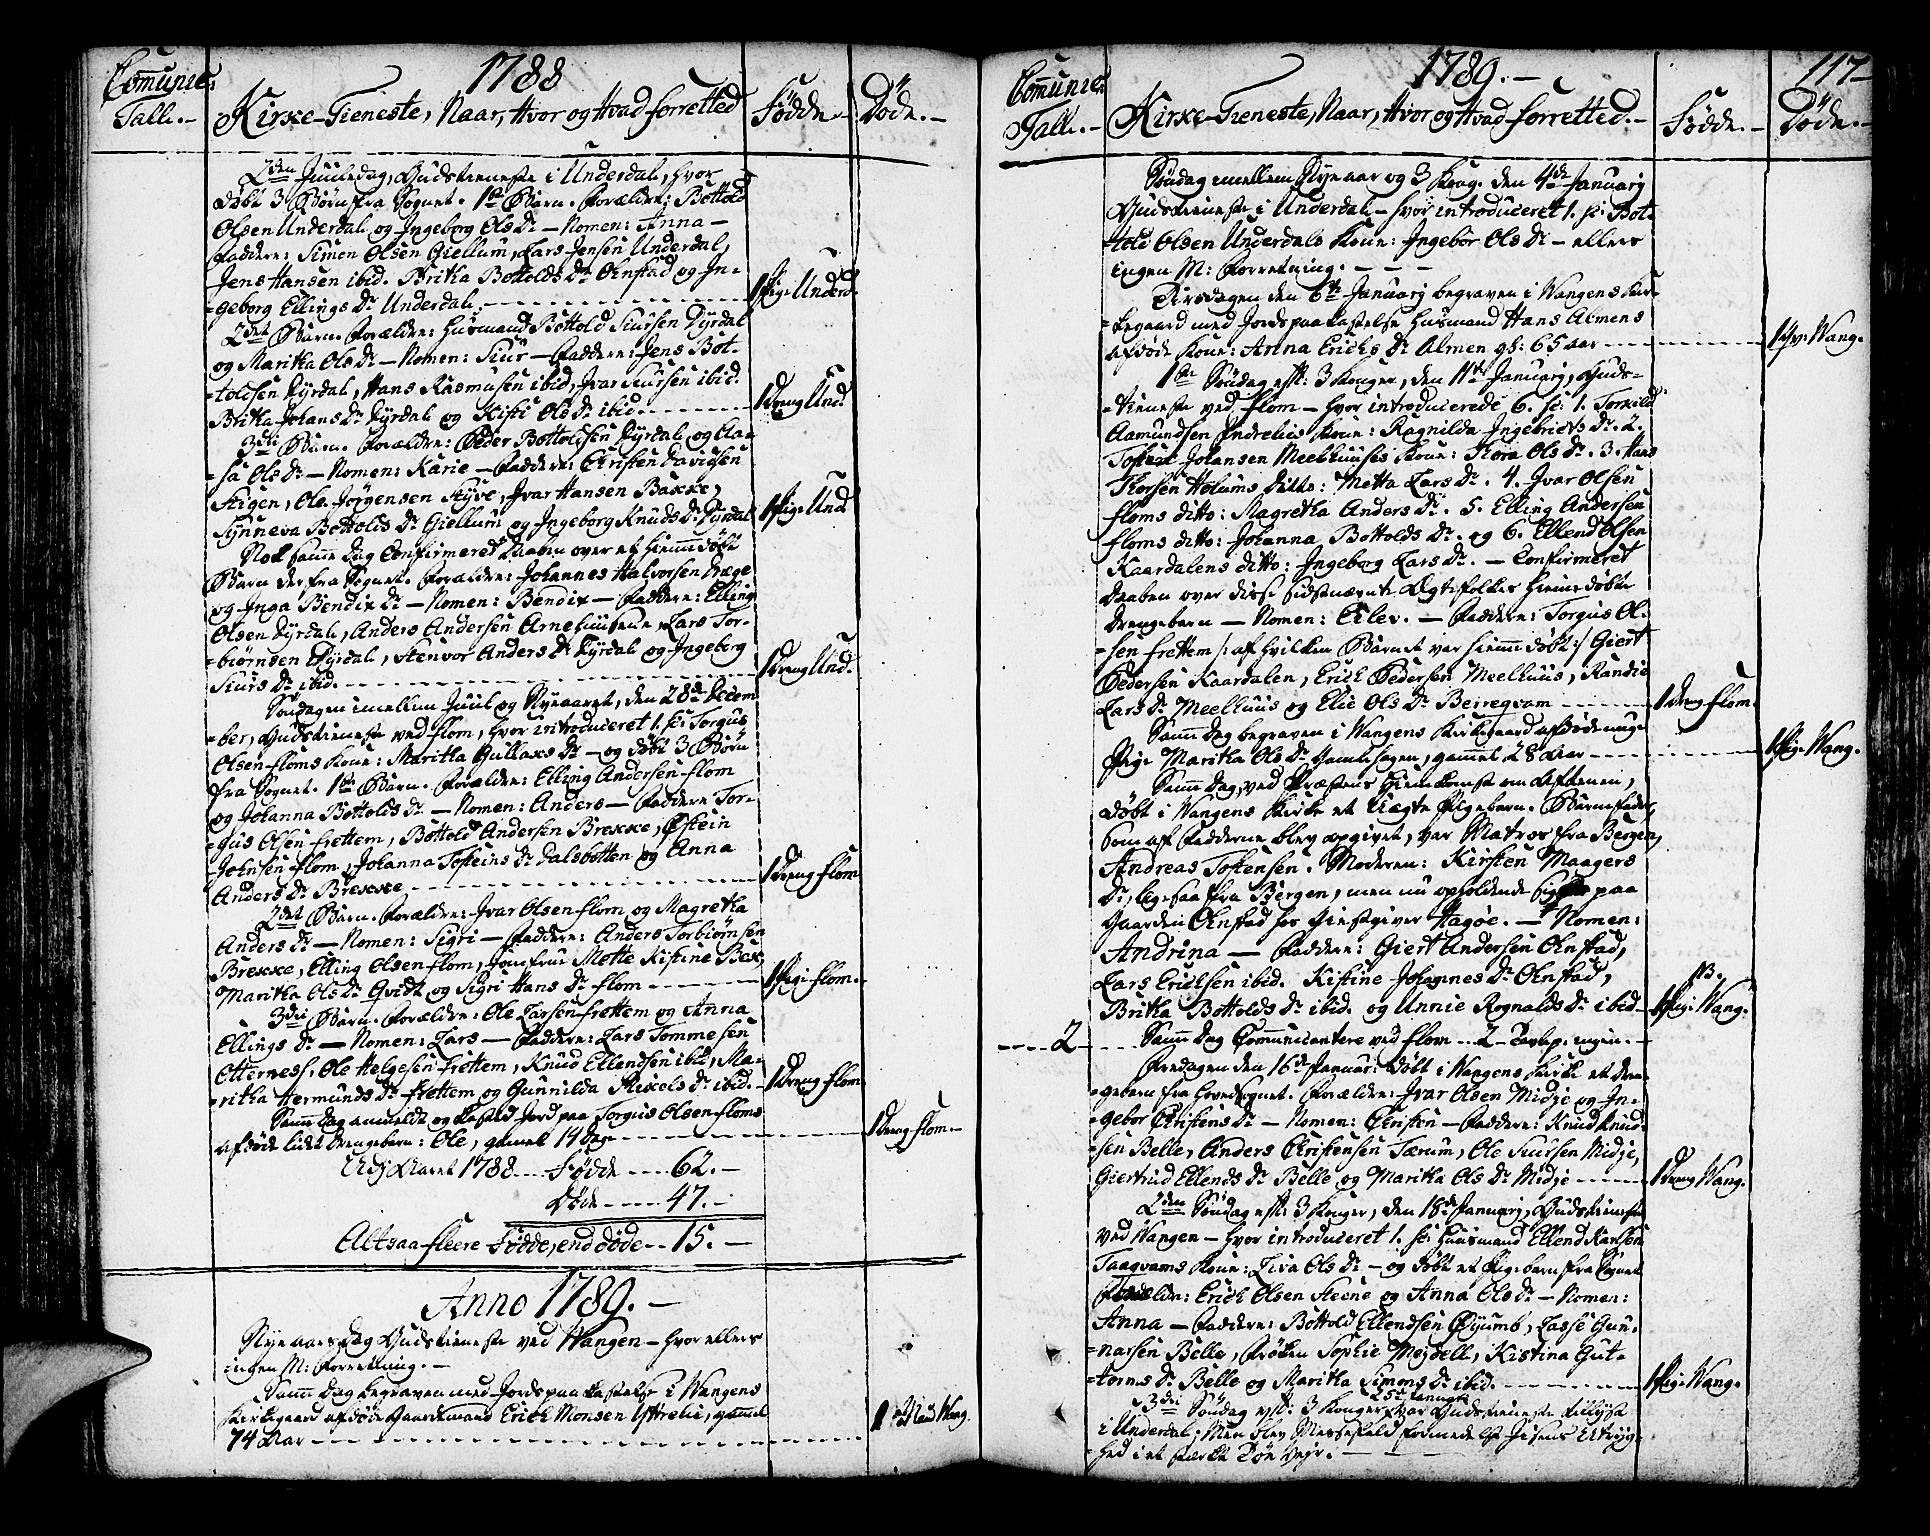 1788
Comunic: Tall.-
Kirke-Tieneste, Naar, Hvor og Hvad forretted
Födde.-
Döde.-
2den Juuledag, Gudstieneste i Underdal, hvor
döbt 3 Börn fra Sognet. 1te Barn. Forældre: Bottold
Olsen Underdal og Ingeborg Ols Dr - Nomen: Anna -
Faddere: Simon Olsen Giellum, Lars Jensen Underdal,
Jens Hansen ibid. Britha Bottolds Dr Onstad og In-
-geborg Ellings Dr Underdal.
1 Pige Underd.
2det Barn. Forældre: Huusmand Bottold Siursen Dyrdal
og Maritha Ols Dr - Nomen: Siur - Faddere: Jens Bot-
tolsen Dyrdal, Hans Rasmusen ibid, Ivar Siursen ibid.
Britha Johans Dr Dyrdal og Kisti Ols Dr ibid.
1 Dreng Und
3die Barn. Forældre: Peder Bottolfsen Dyrdal og Aa-
-sa Ols Dr - Nomen: Karie - Faddere: Christen Davidsen
Stigen, Ole Jörgensen Styve, Ivar Hansen Bakke,
Synneva Bottolds Dr Giellum og Ingeborg Knuds Dr Dyrdal
1 Pige Und
Nok samme Dag Confirmeret Daaben over et hiemmedöbt
Barn der fra Sognet. Forældre: Johannes Halvorsen
og Inga Bendix Dr - Nomen: Bendix - Faddere: Elling
Olsen Dyrdal, Anders Andersen Arnehuusene, Lars Tor-
-biörnsen Dyrdal, Stenvor Anders Dr Dyrdal og Ingeborg
Siurs Dr ibid.
1 Dreng Und.
Söndagen imellem Juul og Nyeaaret, den 28de Decem
-ber, Gudstieneste ved Flom, hvor introduceret 1. sc: Torgus
Olsen Floms Kone: Maritha Gullaks Dr - og döbt 3 Börn
fra Sognet. 1te Barn. Forældre: Elling Andersen Flom
og Johanna Bottolds Dr - Nomen: Anders - Faddere Tor-
-gus Olsen Frettem, Bottold Andersen Brekke, Östein
Johnsen Flom, Johanna Tosteins Dr Dalsbotten og Anna
Anders Dr Brekke
1 Dreng Flom
2det Barn. Forældre: Ivar Olsen Flom og Magretha
Anders Dr - Nomen: Sigri - Faddere: Anders Torbiörnsen
Brekke, Elling Olsen Flom, Jomfrue Mette Kistine Bex,
Maritha Ols Dr Qvidt og Sigri Hans Dr Flom
1 Pige Flom.
3die Barn. Forældre: Ole Larsen Frettem og Anna
Ellings Dr - Nomen: Lars - Faddere: Lars Tommesen
Otternes, Ole Helgesen Frettem, Knud Ellendsen ibid, Ma-
-ritha Hermunds Dr Frettem og Gunnilda Mikels Dr ibid.
1 Dreng Flom
Samme Dag anmeldt og kasted Jord paa Torgus Olsen Floms
afdöde lidet Drengebarn: Ole, gamel 14 dage
1 Dreng Flom.
Udj Aaret 1788 Födde 62.-
Döde 47.-
Altsaa fleere Födde, end döde 15.-
Anno 1789.-
Nyeaarsdag Gudstieneste ved Wangen - hvor ellers
ingen M: Forretning.-
Samme Dag begraven med Jordspaakastelse i Wangens
Kirkegaard afdöde Gaardemand Erich Monsen Ytterlie, gammel
74 Aar
1 Mand Wang.
1789.-
117-
Comunic: Tall.-
Kirke-Tieneste, Naar, Hvor og Hvad forretted.-
Födde.-
Döde.-
Söndag imellem Nyeaar og 3 Kong. den 4de Januarj
Gudstieneste i Underdal - hvor introduceret 1. sc: Bot-
told Olsen Underdals Kone: Ingebor Ols Dr - ellers
ingen M: Forretning.
Tirsdagen den 6te Januarj begraven i Wangens Kir-
-kegaard med Jordspaakastelse Huusmand Hans Almens
afdöde Kone: Anna Erichs Dr Almen gl: 65 aar
1 Wang.
1ste Söndag eft: 3 Konger, den 11te Januarj, Guds-
-tieneste ved Flom - hvor introducerede 6. sc: 1. Torkild
Aamundsen Indrelies Kone: Ragnilda Ingebrigts Dr. 2.
Tosten Johansen Meelhuuses Kone: Kora Ols Dr. 3. Hans
Thorsen Holums ditto: Metta Lars Dr. 4. Ivar Olsen
Floms ditto: Magretha Anders Dr. 5. Elling Andersen
Floms ditto: Johanna Bottolds Dr. og 6. Ellend Olsen
Kaardalens ditto: Ingeborg Lars Dr. - Confirmeret
Daaben over disse sidstnævnte Ægtefolkes hiemmedöbte
Drengebarn - Nomen: Eilev. - Faddere: Torgus Ol-
-sen Frettem /: af hvilken Barnet var hiemmedöbt:/ Giert
Pedersen Kaardalen, Erich Pedersen Meelhuus, Randie
Lars Dr Meelhuus og Elie Ols Dr Berreqvam
1 Dreng Flom.
Samme Dag begraven i Wangens Kirkegaard afdöde unge
Pige Maritha Ols Dr, gammel 28 Aar
1 Pige Wang.
Samme Dag, ved Præstens Hiemkomst om Aftenen,
döbt i Wangens Kirke et Uægte Pigebarn. Barnefader,
som af Fadderne blev opgivet, var Matros fra Bergen,
Andreas Tostensen. Moderen: Kirsten Maagers
Dr, ligesaa fra Bergen, men nu opholdende sig paa
Gaarden Onstad hos Giestgiver Hagöe. - Nomen:
Andrina - Faddere: Giert Andersen Onstad,
Lars Erichsen ibid. Kistine Johannes Dr Onstad,
Britha Bottolds Dr ibid. og Unnie Rognalds Dr ibid
NB.
1 Pige Wang.
2
Samme Dag Communicantere ved Flom 2 - ingen.-
Fredagen den 16de Januar: döbt i Wangens Kirke et Dren-
-gebarn fra Hovedsognet. Forældre: Ivar Olsen Midje og In-
-gebor Christens Dr - Nomen: Christen - Faddere: Knud Knud-
sen Belle, Anders Christensen Tærum, Ole Siursen Midje,
Giertrud Ellends Dr Belle og Maritha Ols Dr Midje
1 Dreng Wang.
2den Söndag eft: 3 Konger, den 18de Januarj, Gudstieneste
ved Wangen - hvor introduceret 1. sc: Huusmand Ellend Hansen
Taagvams Kone: Liva Ols Dr - og döbt et Pigebarn fra Sognet
Forældre: Erich Olsen Steene og Anna Ols Dr - Nomen:
Anna - Faddere: Bottold Ellendsen Öyumb, Lasse Gun-
-narsen Belle, Fröken Sophie Mejdell, Kistina Gut-
-torms Dr Belle og Maritha Simons Dr ibid.
1 Pige Wang.
3die Söndag eft: 3 Konger, 25de Januarj var Gudstieneste tillyst
i Underdal; Men blev Messefald formedelst Jisens Utryg-
-hed i et stærkt Töe Vejr.-